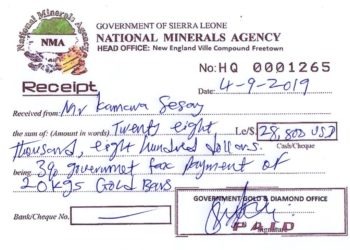 GOVERNMENT OF SIERRA LEONE
National Minerals Agency
NMA
NATIONAL MINERALS AGENCY
HEAD OFFICE: New England Ville Compound Freetown
No: HQ 0001265
Receipt
Date: 4-9-2019
Received from: Mr Kamara Sesay
the sum of: (Amount in words) Twenty eight Le/$ 28,800 USD
thousand, eight hundred dollars. Cash/Cheque
being 3% governmet tax payment of
20kgs Gold Bars
GOVERNMENT GOLD & DIAMOND OFFICE
Bank/Cheque No.
PAID
Signature